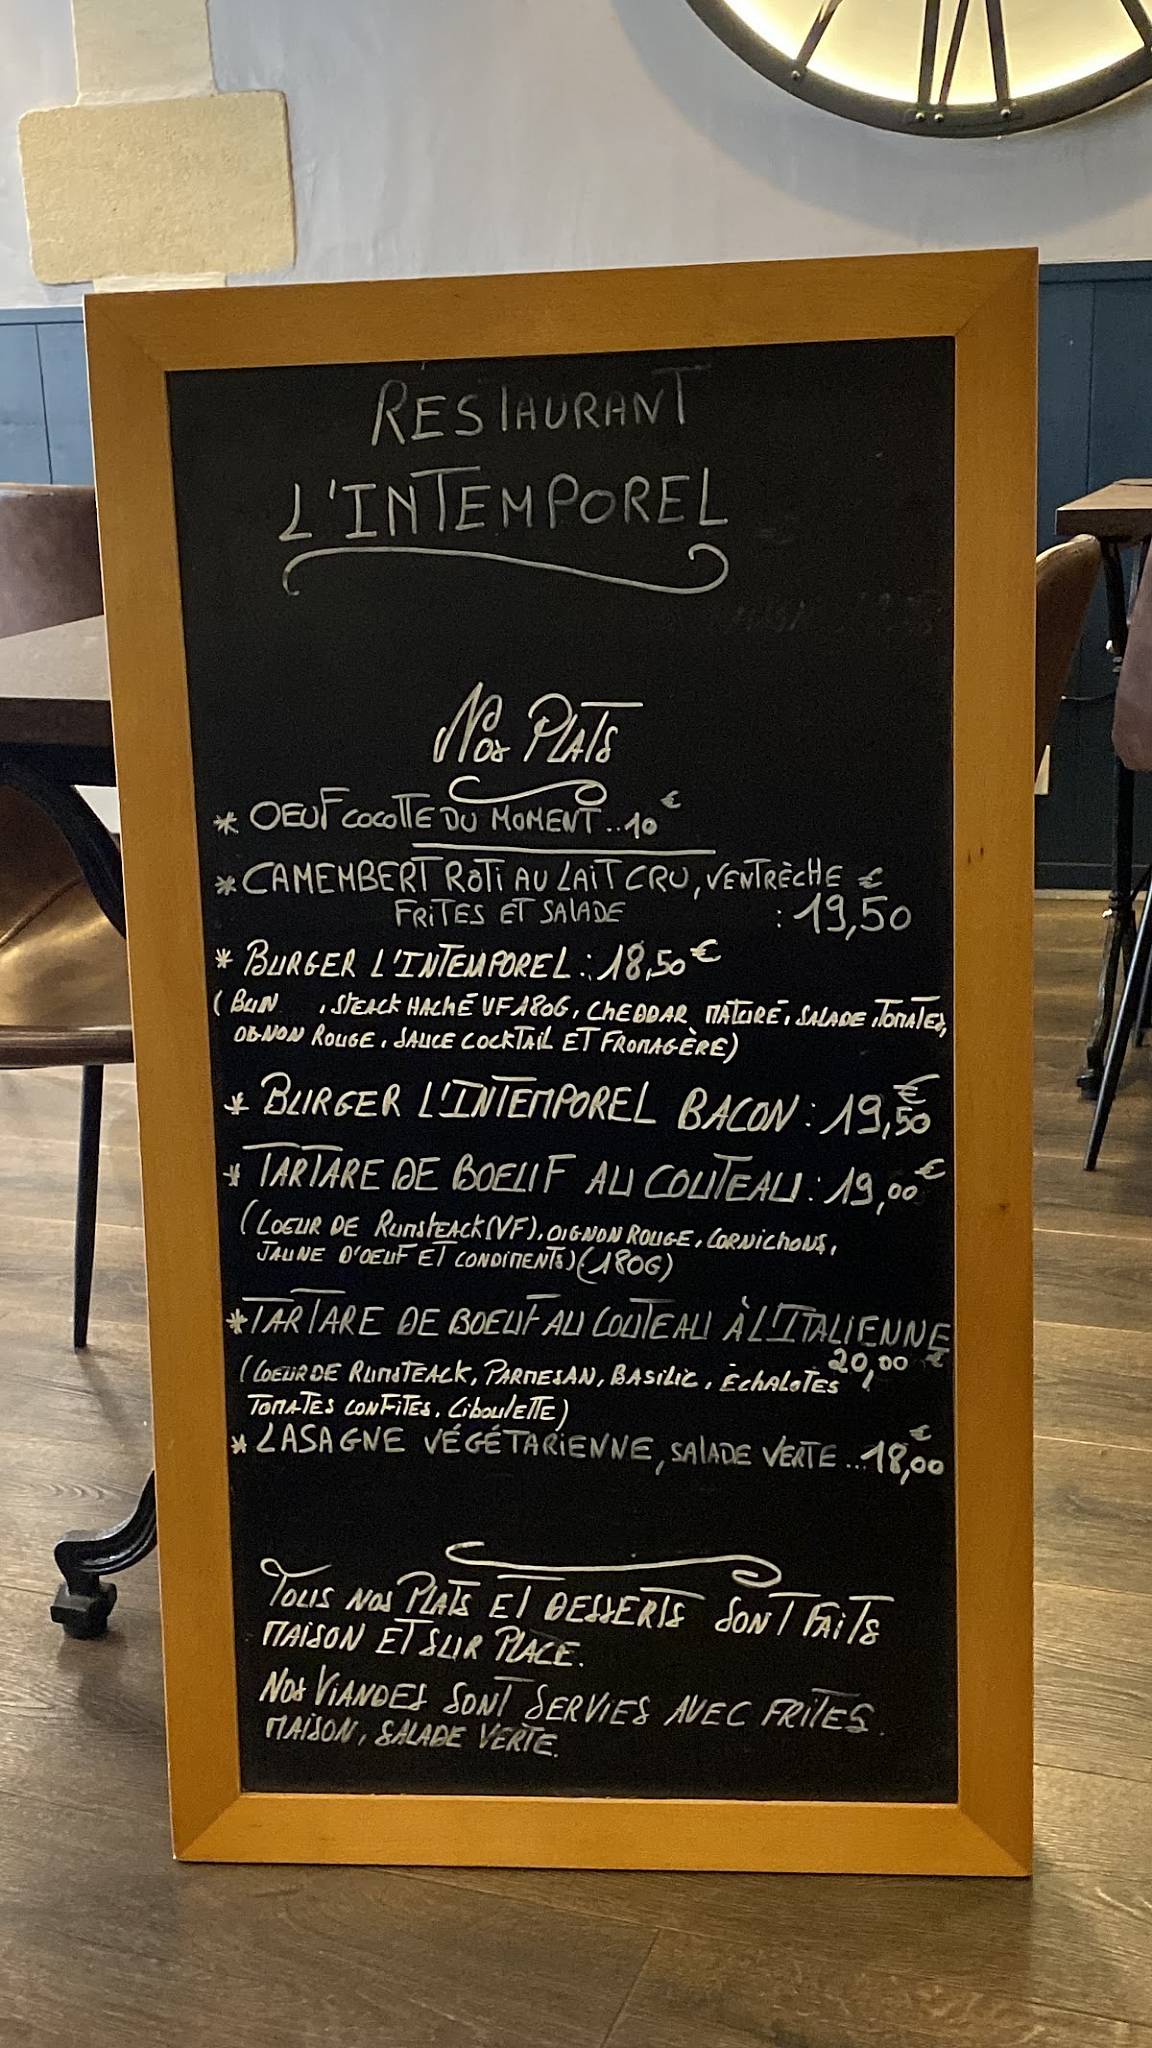 RESTAURANT
L'INTEMPOREL
Nos PLATS
* OEUF COCOTTE DU MOMENT...10€
* CAMEMBERT RÔTI AU LAIT CRU, VENTRÈCHE €
FRITES ET SALADE : 19,50
* BURGER L'INTEMPOREL : 18,50€
(BUN , STEACK HACHÉ VF 180G, CHEDDAR MATURÉ, SALADE, TOMATES,
OIGNON ROUGE, SAUCE COCKTAIL ET FROMAGÈRE)
* BURGER L'INTEMPOREL BACON : 19,50€
* TARTARE DE BOEUF AU COUTEAU : 19,00€
(COEUR DE RUMSTEACK (VF), OIGNON ROUGE, CORNICHONS,
JAUNE D'OEUF ET CONDIMENTS) (180G)
* TARTARE DE BOEUF AU COUTEAU À L'ITALIENNE
20,00 €
(COEUR DE RUMSTEACK, PARMESAN, BASILIC, ÉCHALOTES,
TOMATES CONFITES, CIBOULETTE)
* LASAGNE VÉGÉTARIENNE, SALADE VERTE ...18,00€
TOUS NOS PLATS ET DESSERTS SONT FAITS
MAISON ET SUR PLACE.
NOS VIANDES SONT SERVIES AVEC FRITES
MAISON, SALADE VERTE.